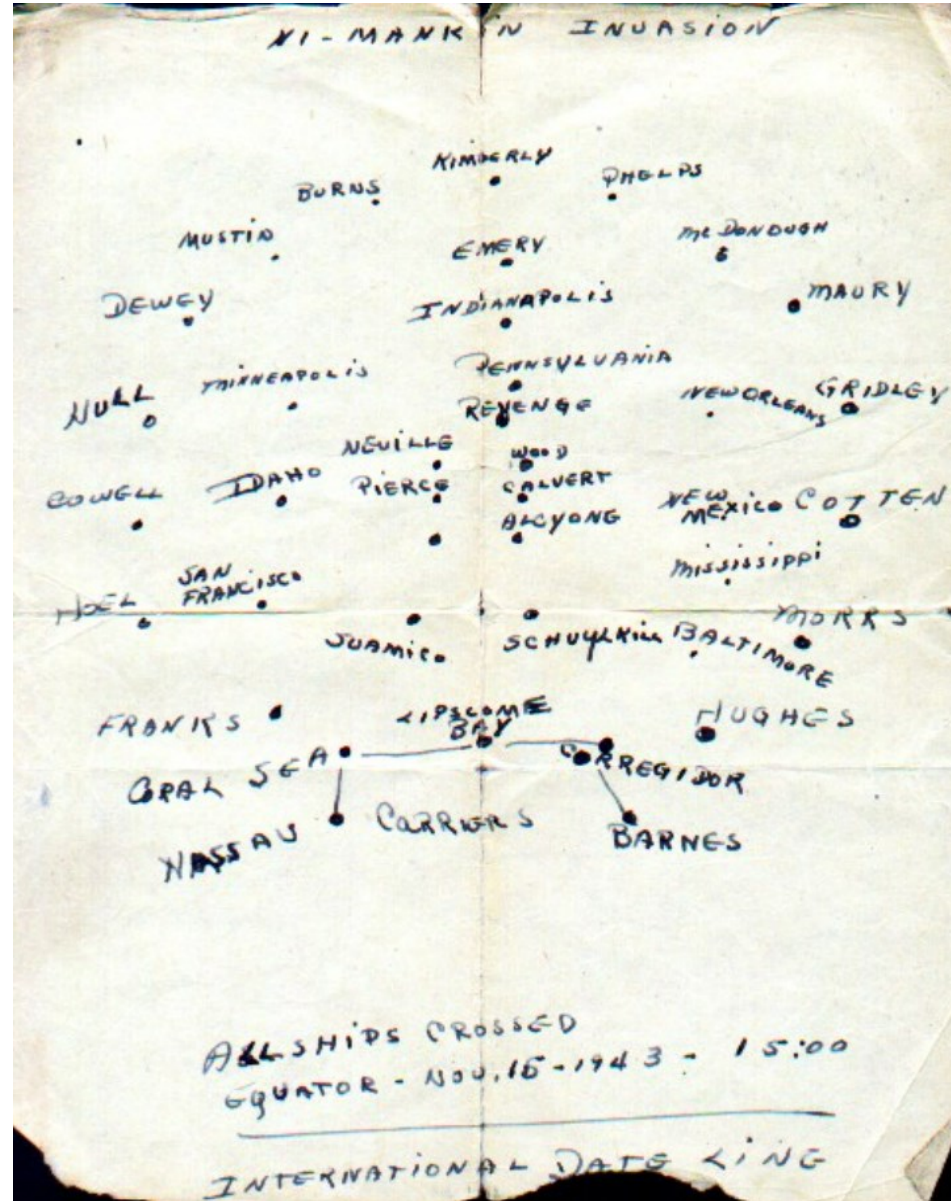 NI-MANKIN INVASION
KIMBERLY
BURNS
PHELPS
MUSTIN
EMERY
Mc DONOUGH
DEWEY
INDIANAPOLIS
MAURY
PENNSYLVANIA
MINNEAPOLIS
NULL
REVENGE
NEW ORLEANS
GRIDLEY
NEVILLE
WOOD
COWELL
IDAHO
PIERCE
CALVERT
NEW
MEXICO
COTTEN
ALCYONG
MISSISSIPPI
SAN
FRANCISCO
HOEL
MORRS
SUAMICO
SCHUYLKILL
BALTIMORE
LIPSCOME
BAY
FRANKS
HUGHES
CORAL SEA
CORREGIDOR
NASSAU
CARRIERS
BARNES
ALL SHIPS CROSSED
EQUATOR - NOV. 15 - 1943 - 15:00
INTERNATIONAL DATE LING